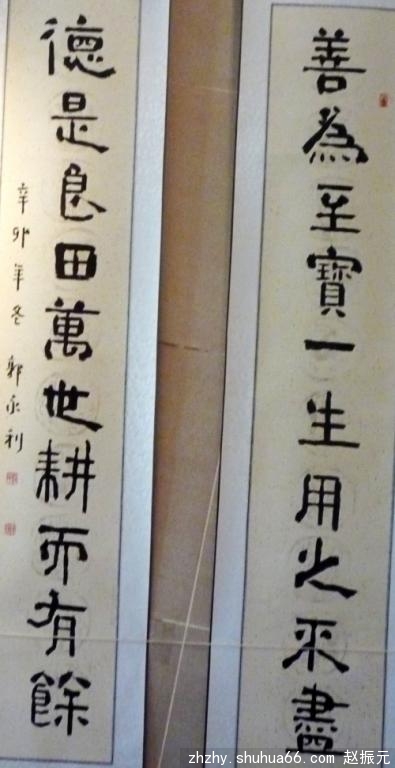 善為至寶一生用之不盡
德是良田萬世耕而有餘
辛卯年冬 郭永利
zhzhy.shuhua66.com 赵振元